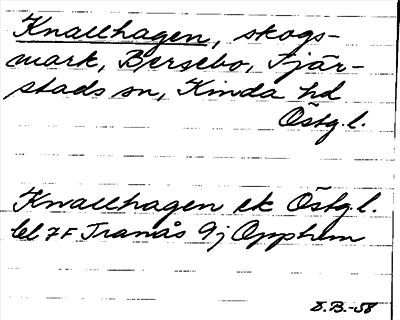 Knallhagen, skogs-
mark, Bersebo, Tjär-
stads sn, Kinda hd
Östg.l.
Knallhagen ek Östg.l.
bl 7F Tranås 9j Opphem
S.B.-58